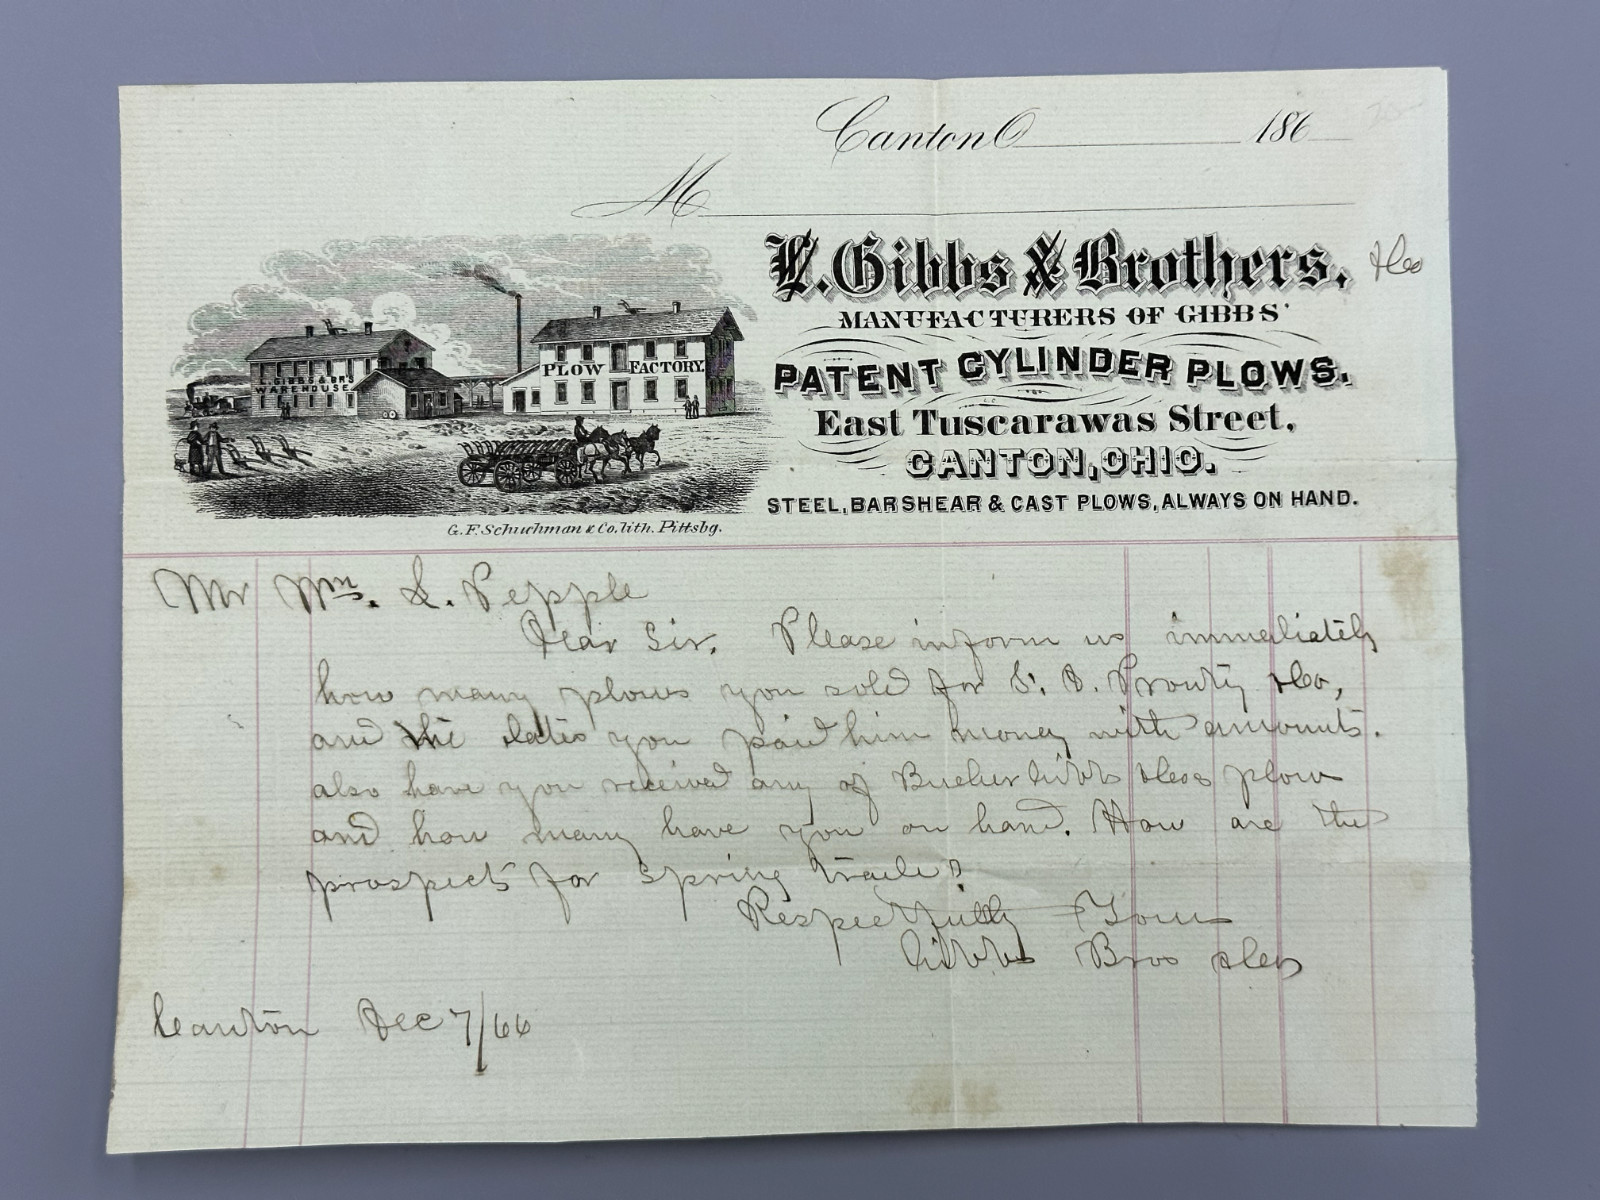 Canton O 186
M
L. Gibbs & Brothers, &Co
MANUFACTURERS OF GIBBS'
PATENT CYLINDER PLOWS.
East Tuscarawas Street,
CANTON, OHIO.
STEEL, BARSHEAR & CAST PLOWS, ALWAYS ON HAND.
L. GIBBS & BR'S
WAREHOUSE
PLOW FACTORY.
G. F. Schuchman & Co. lith. Pittsbg.
Mr Wm. S. Pepple
Dear Sir. Please inform us immediately
how many plows you sold for S. D. Prouty &Co,
and the dates you paid him money with amounts.
also have you received any of Bucher Gibbs &Cos plow
and how many have you on hand. How are the
prospects for Spring trade?
Respectfully Yours
Gibbs Bros &Co
Canton Dec 7/66